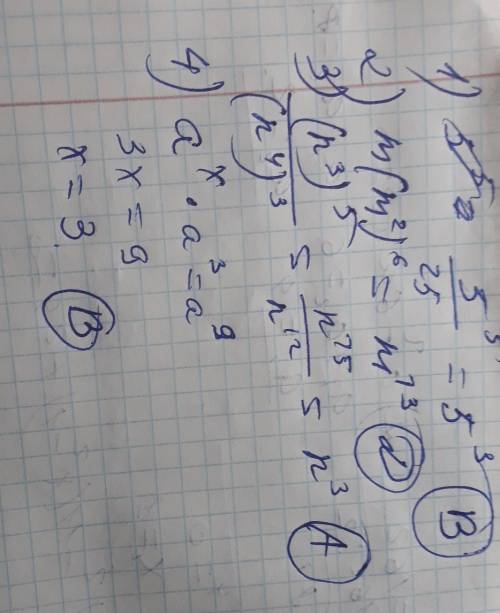 1) 5⁵/25 = 5³ В
2) m(m²)⁶ = m¹³
3) (n³)⁵/(n⁴)³ = n¹⁵/n¹² = n³ А
4) aˣ · a³ = a⁹
3x = 9
x = 3. В